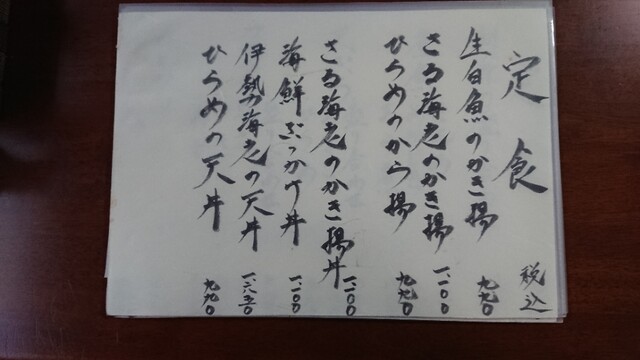 定食 税込
生白魚のかき揚 九九〇
さる海老のかき揚 一、一〇〇
ひらめのから揚 九九〇
さる海老のかき揚丼 一、一〇〇
海鮮ぶっかけ丼 一、一〇〇
伊勢海老の天丼 一、六五〇
ひらめの天丼 九九〇